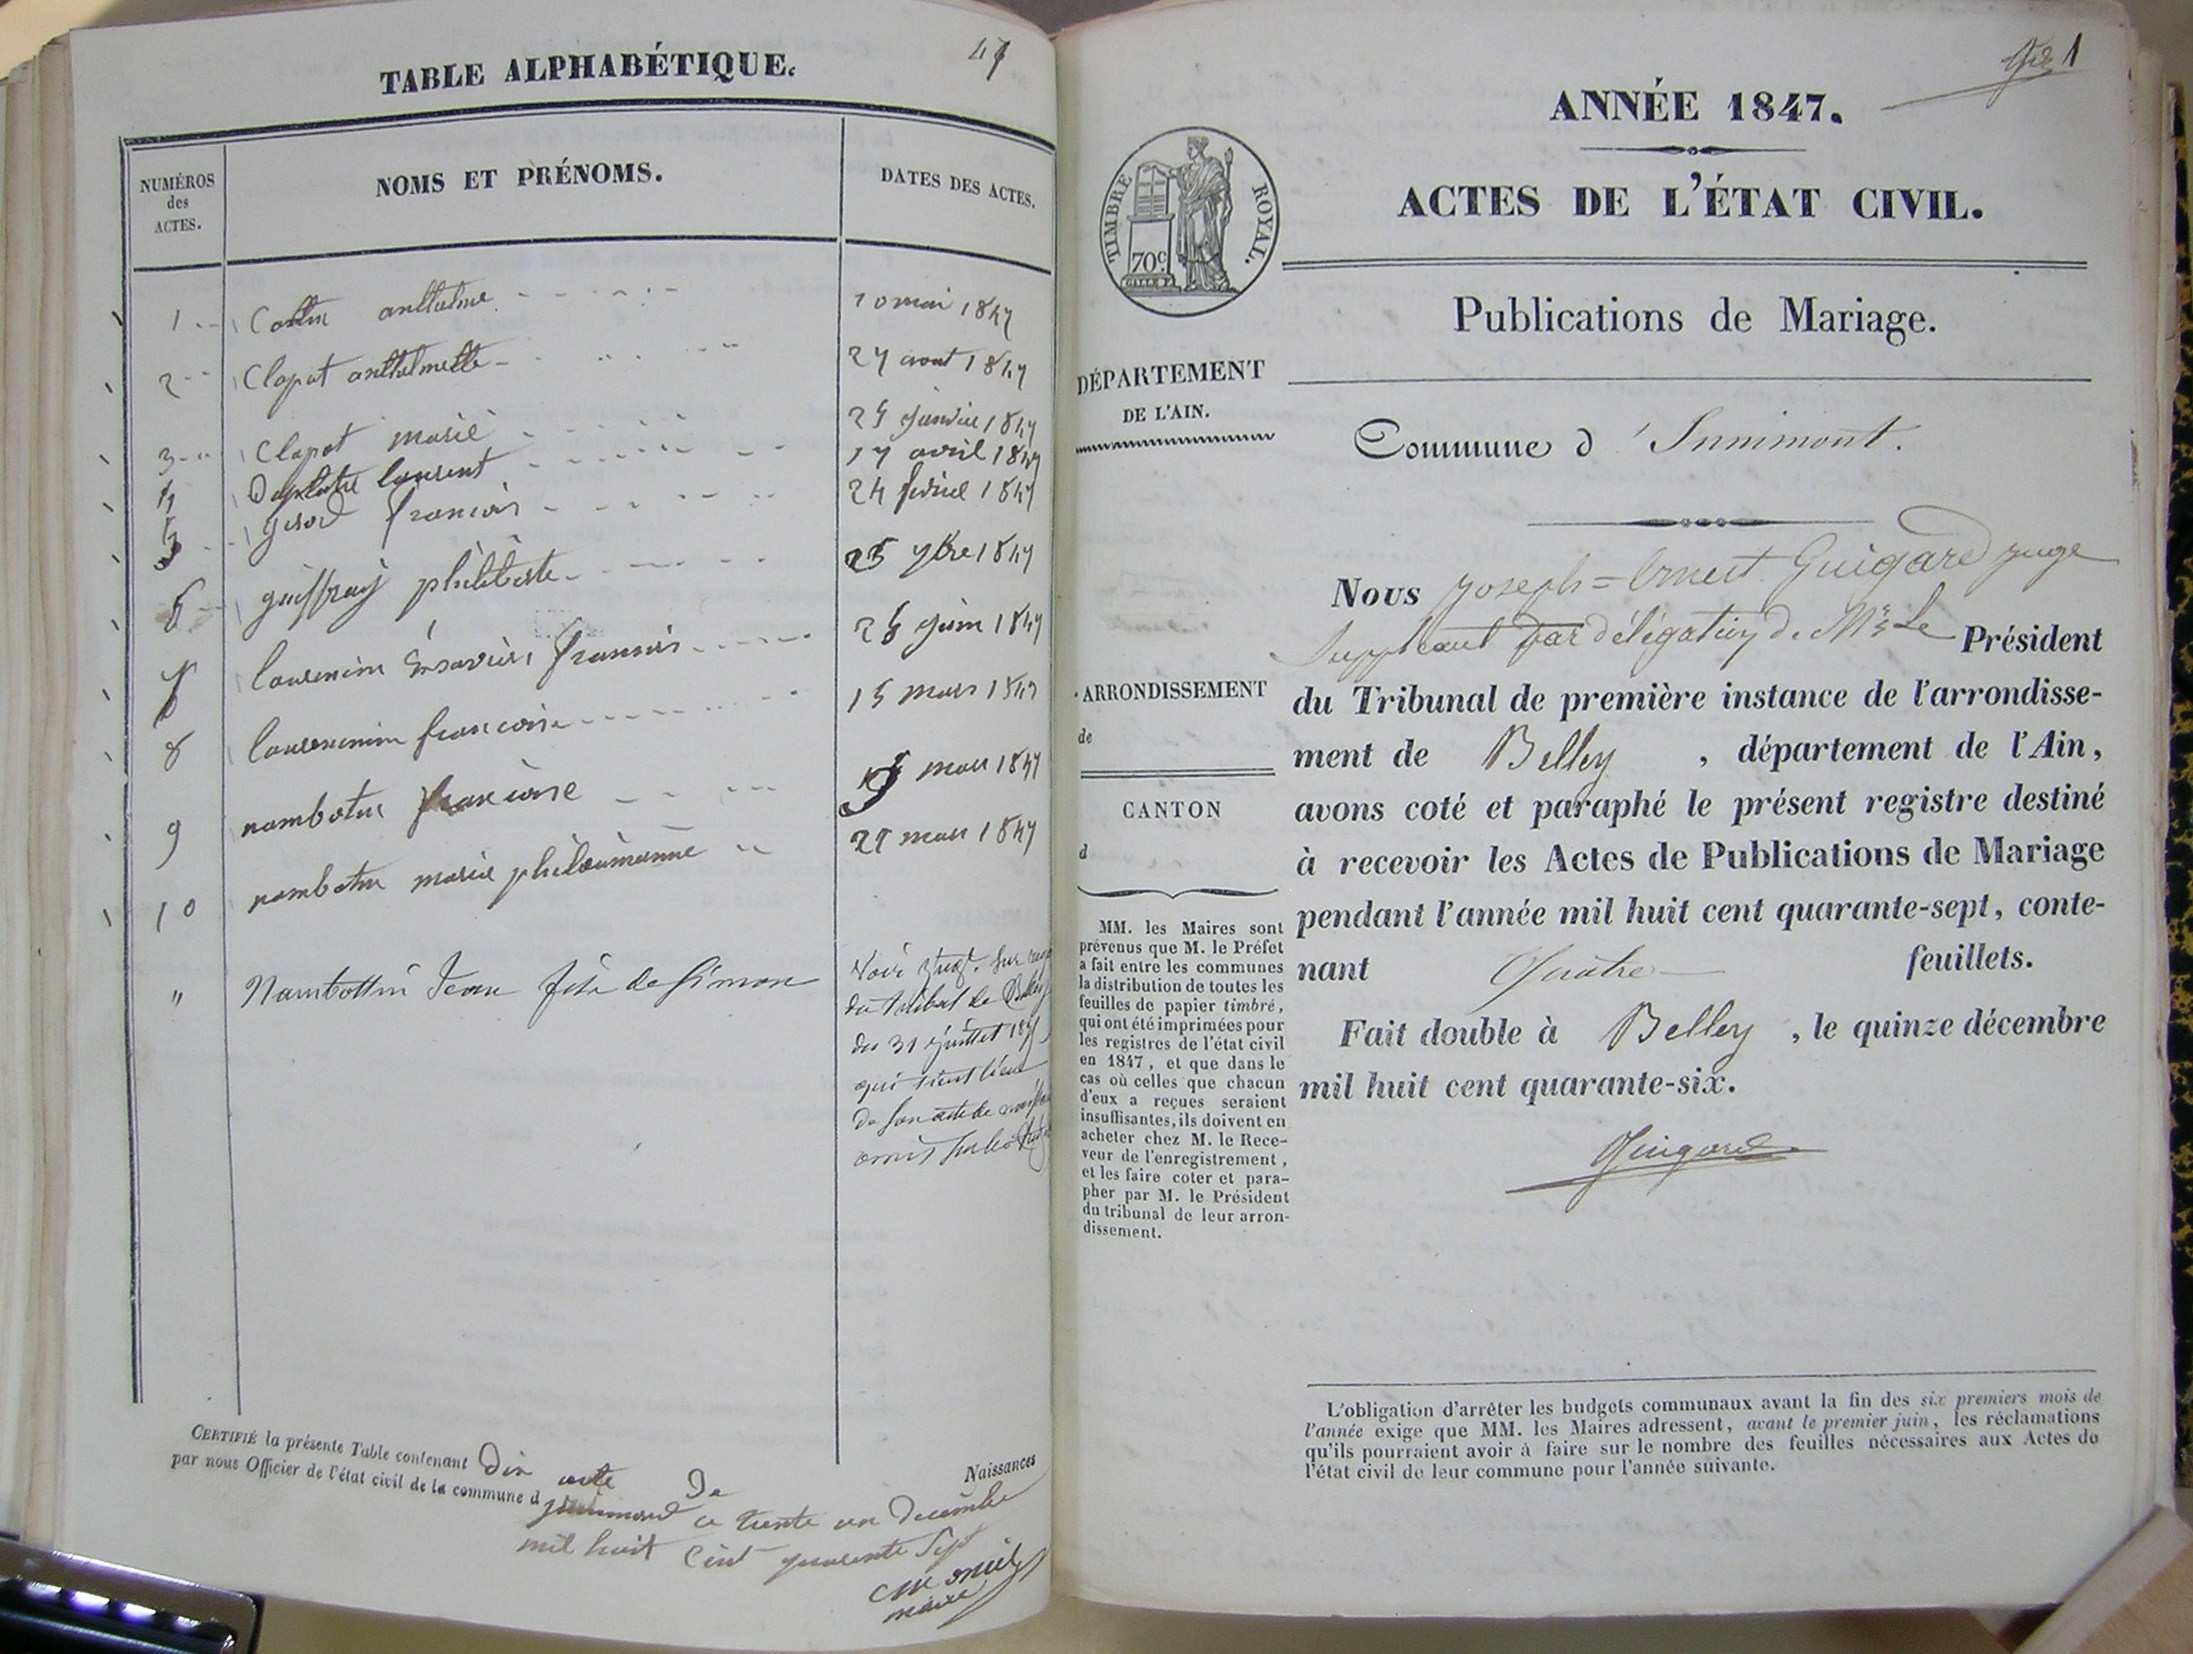 TABLE ALPHABÉTIQUE.
NUMÉROS
des
ACTES.
NOMS ET PRÉNOMS.
DATES DES ACTES.
1 anthelme 10 mai 1847
2 Clapot anthelmette 27 aout 1847
3 Clapot marie 25 janvier 1847
4 laurent 17 avril 1847
5 françois 24 1847
6 guiffray philiberte 25 1847
7 françois 28 juin 1847
8 françoise 15 mars 1847
9 nambotin françoise mars 1847
10 nambotin marie 21 mars 1847
" Nambottin Jean fils de Simon
Voir
du tribal de Belley
du 31 juillet
qui tient lieu
de son acte de
omis
CERTIFIÉ la présente Table contenant Dix acte De Naissances
par nous Officier de l'état civil de la commune d ce trente un Decembre
mil huit Cent quarante Sept
maire
1
ANNÉE 1847.
ACTES DE L'ÉTAT CIVIL.
TIMBRE ROYAL.
70c
Publications de Mariage.
DÉPARTEMENT
DE L'AIN.
Commune d'Innimont.
ARRONDISSEMENT
de
CANTON
d
MM. les Maires sont
prévenus que M. le Préfet
a fait entre les communes
la distribution de toutes les
feuilles de papier timbré,
qui ont été imprimées pour
les registres de l'état civil
en 1847, et que dans le
cas où celles que chacun
d'eux a reçues seraient
insuffisantes, ils doivent en
acheter chez M. le Rece-
veur de l'enregistrement,
et les faire coter et para-
pher par M. le Président
du tribunal de leur arron-
dissement.
Nous Joseph=Ernest Guigard juge
Suppleant par délégation de Mr Le Président
du Tribunal de première instance de l'arrondisse-
ment de Belley, département de l'Ain,
avons coté et paraphé le présent registre destiné
à recevoir les Actes de Publications de Mariage
pendant l'année mil huit cent quarante-sept, conte-
nant Quatre feuillets.
Fait double à Belley, le quinze décembre
mil huit cent quarante-six.
Guigard
L'obligation d'arrêter les budgets communaux avant la fin des six premiers mois de
l'année exige que MM. les Maires adressent, avant le premier juin, les réclamations
qu'ils pourraient avoir à faire sur le nombre des feuilles nécessaires aux Actes de
l'état civil de leur commune pour l'année suivante.